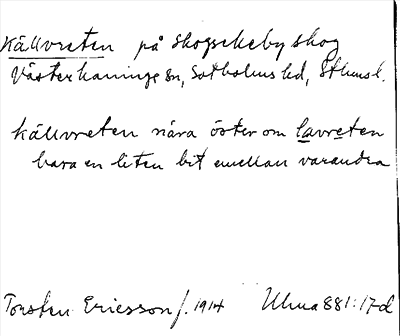 Källvreten på Skogsekeby skog
Västerhaninge sn, Sotholms hd, Sthmsl.
Källvreten nära öster om lavreten
bara en liten bit emellan varandra
Torsten Ericsson f. 1914 Ulma 881:17d